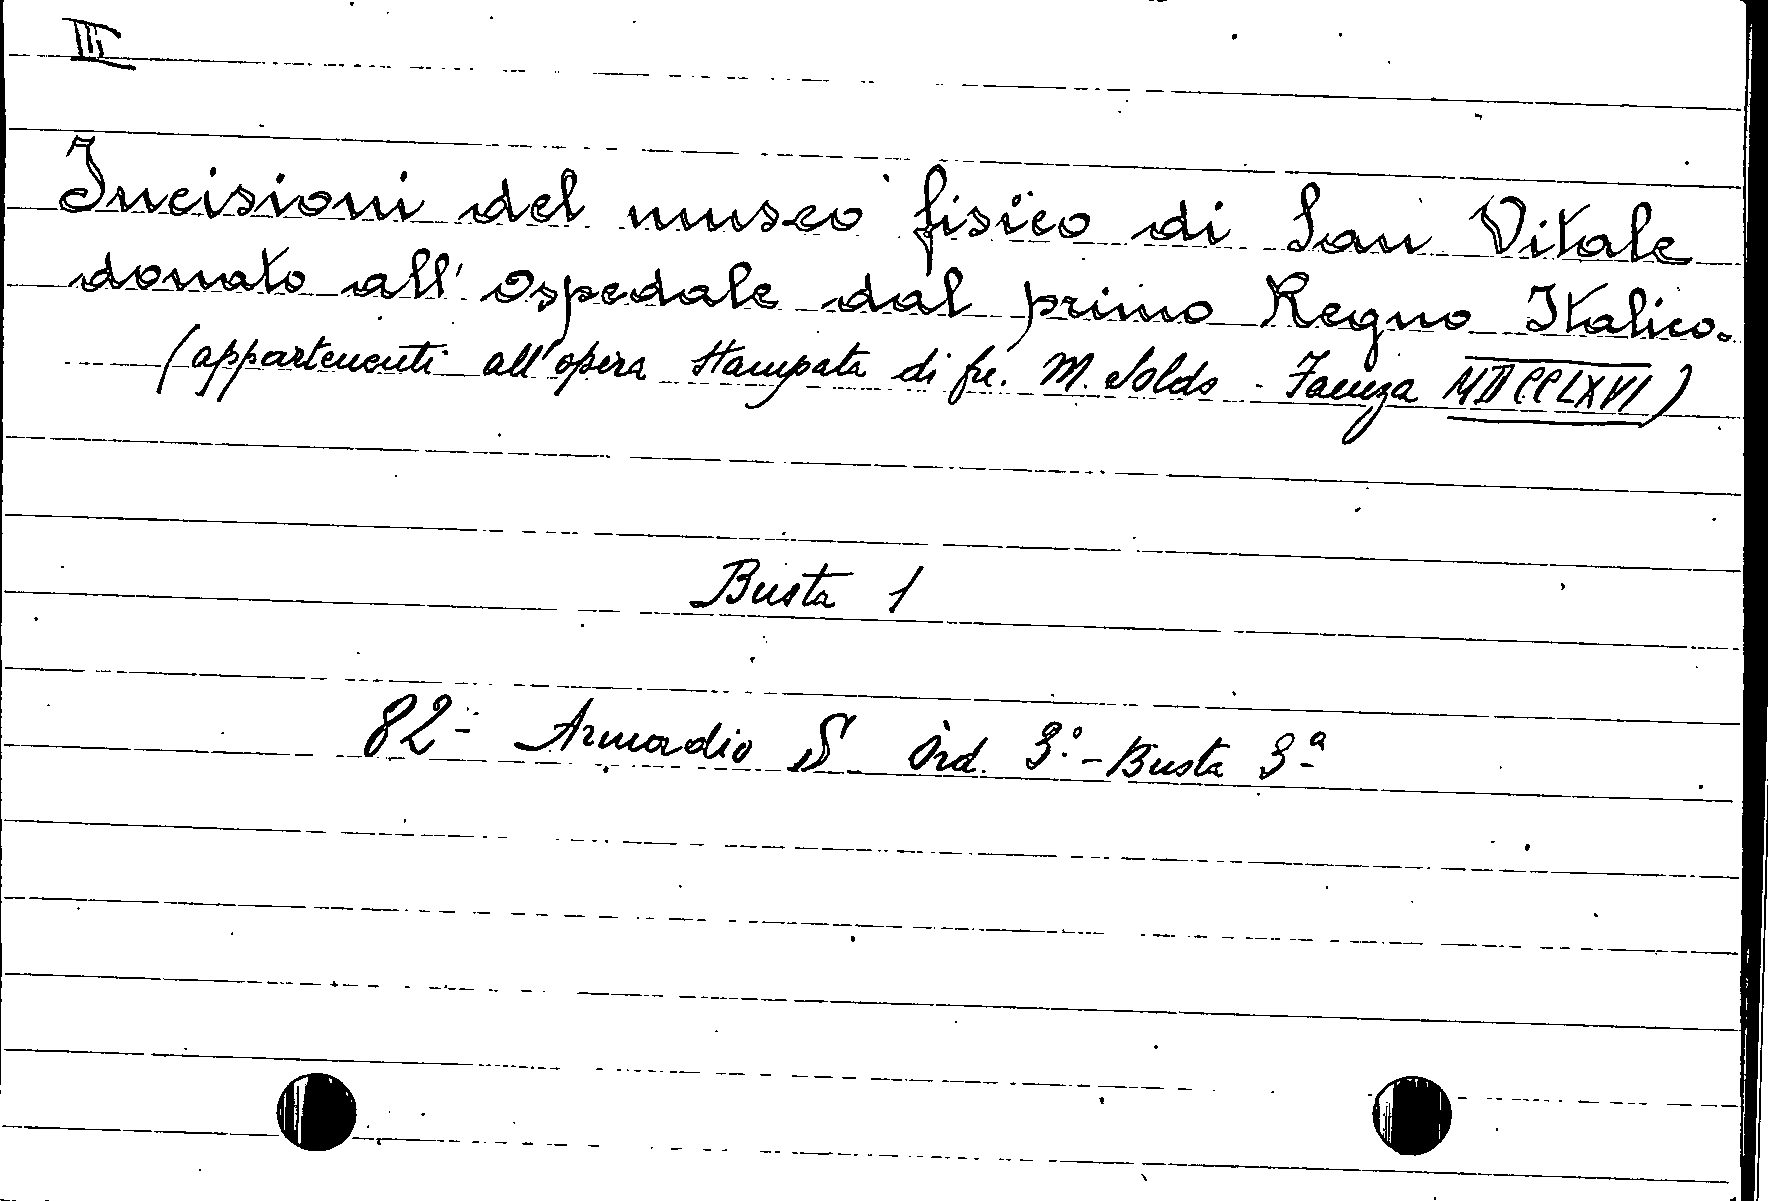 III
Incisioni del museo fisico di San Vitale
donato all' Ospedale dal primo Regno Italico.
(appartenenti all'opera stampata di fr. M. Soldo - Faenza MDCCLXVI)
Busta 1
82- Armadio S Ord. 3° - Busta 3ª